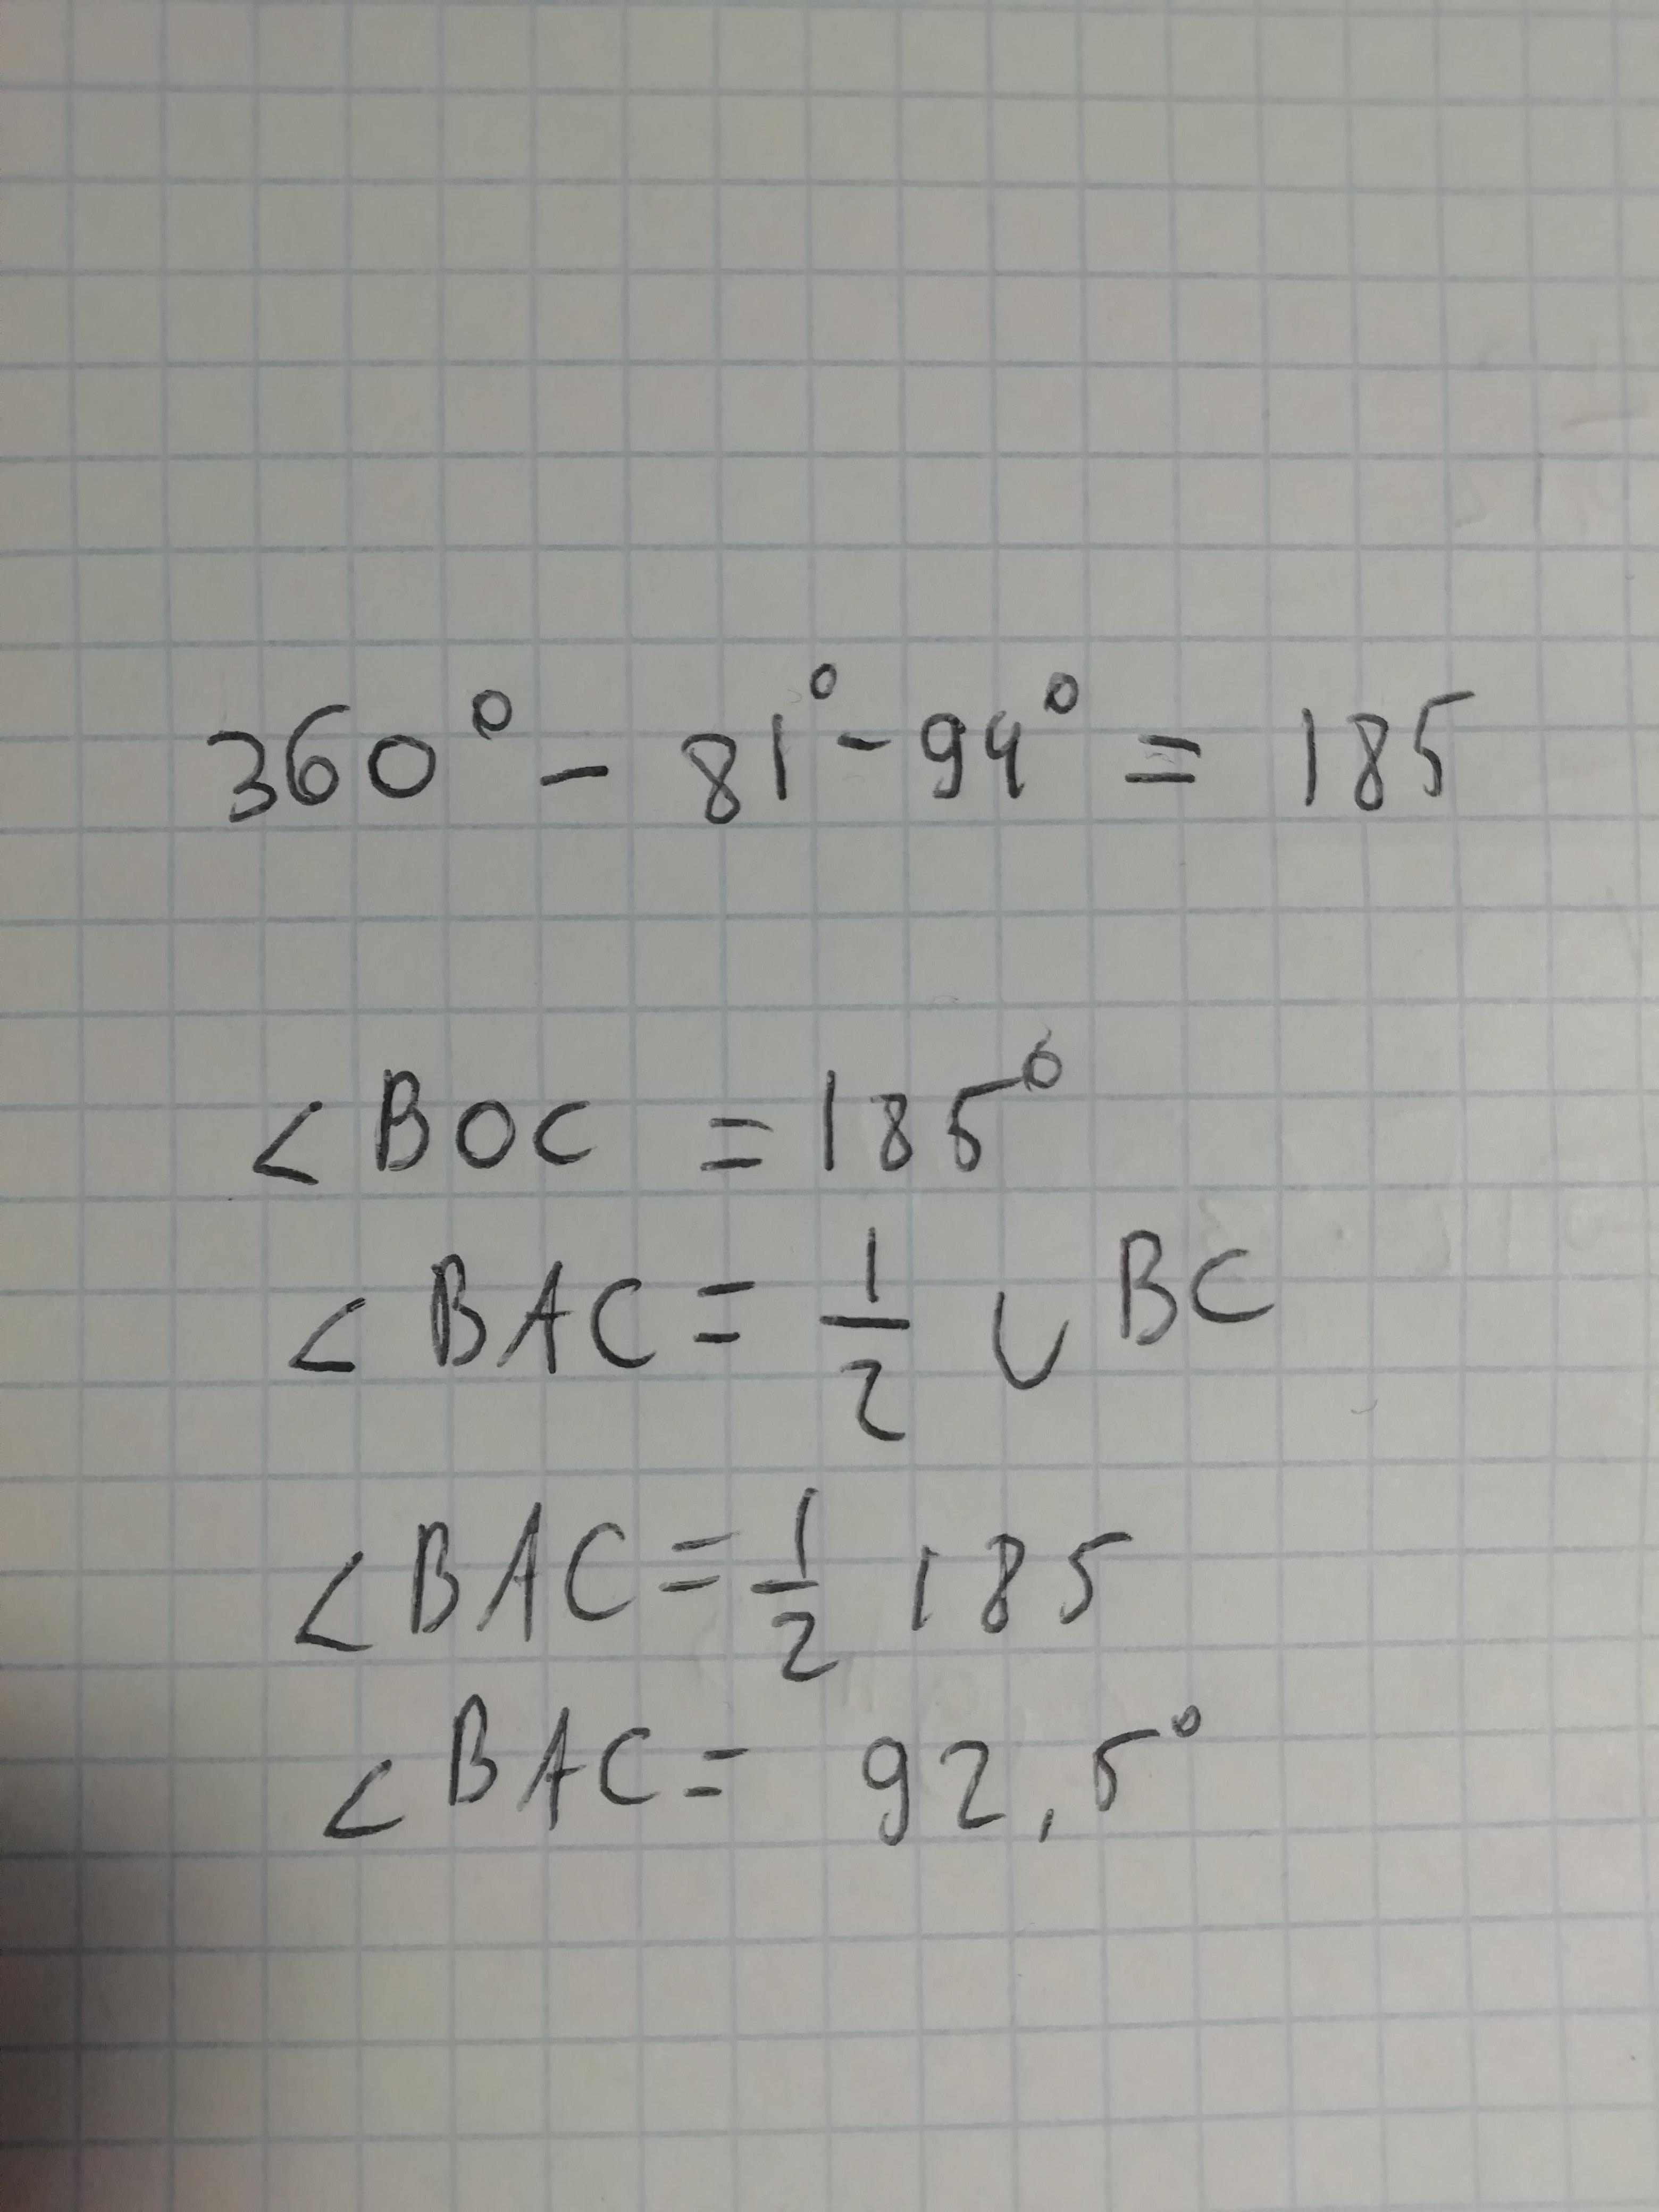 360° - 81° - 94° = 185
∠BOC = 185°
∠BAC = 1/2 ∪ BC
∠BAC = 1/2 185
∠BAC = 92,5°